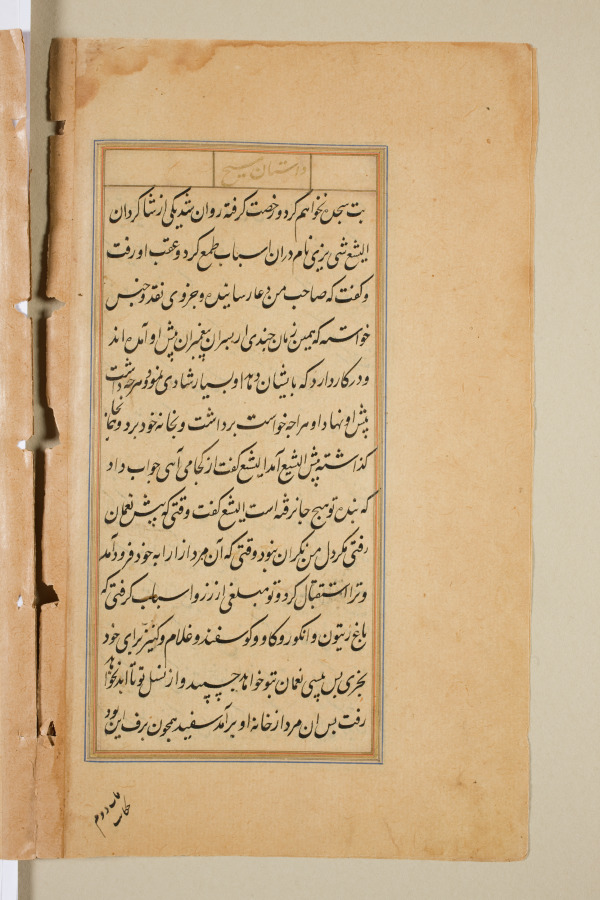 داستان مسیح
بت سجده نخواهم کرد و رخصت کرفته روان شد یکی از شاکردان
الیشع شی یزی نام دران اسباب طمع کرد و عقب او رفت
و کفت که صاحب من دعا رسانیده و جزوی نقد و جنس
خواسته که همین زمان چندی از پسران پیغمبران پیش او آمده اند
و در کار دارد که بایشان دهد او بسیار شادی نمود و هرچه داشت
پیش او نهاد او هر اجه خواست برداشت و بخانه خود برد و بجا
کذاشته پیش الیشع آمد الیشع کفت از کجا می آیی جواب داد
که بنده تو هیچ جا نرفته است الیشع کفت وقتی که پیش نعمان
رفتی مکر دل من نکران نبود وقتی که آن مرد از ارابه خود فرود آمد
و ترا استقبال کرد و تو مبلغی از زر و اسباب کرفتی که
باغ زیتون و انکور و کاو و کوسفند و غلام و کنیز برای خود
بخری پس پیسی نعمان بتو خواهد چسپید و از نسل تو تا ابد نخواهد
رفت پس ان مرد از خانه او برآمد سفید همچون برف این بود